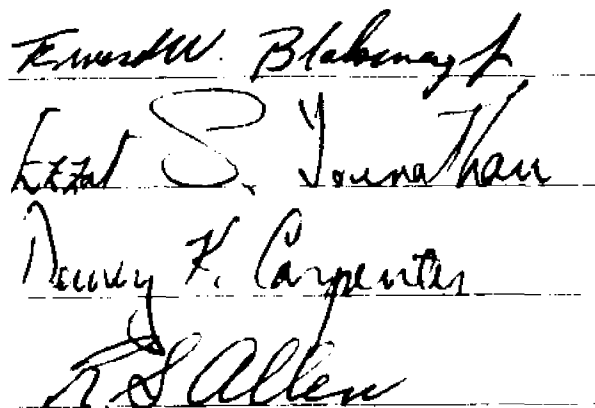 Ernest W. Blakeney Jr
Ezzat S. Younathan
Dewey K. Carpenter
R. S. Allen